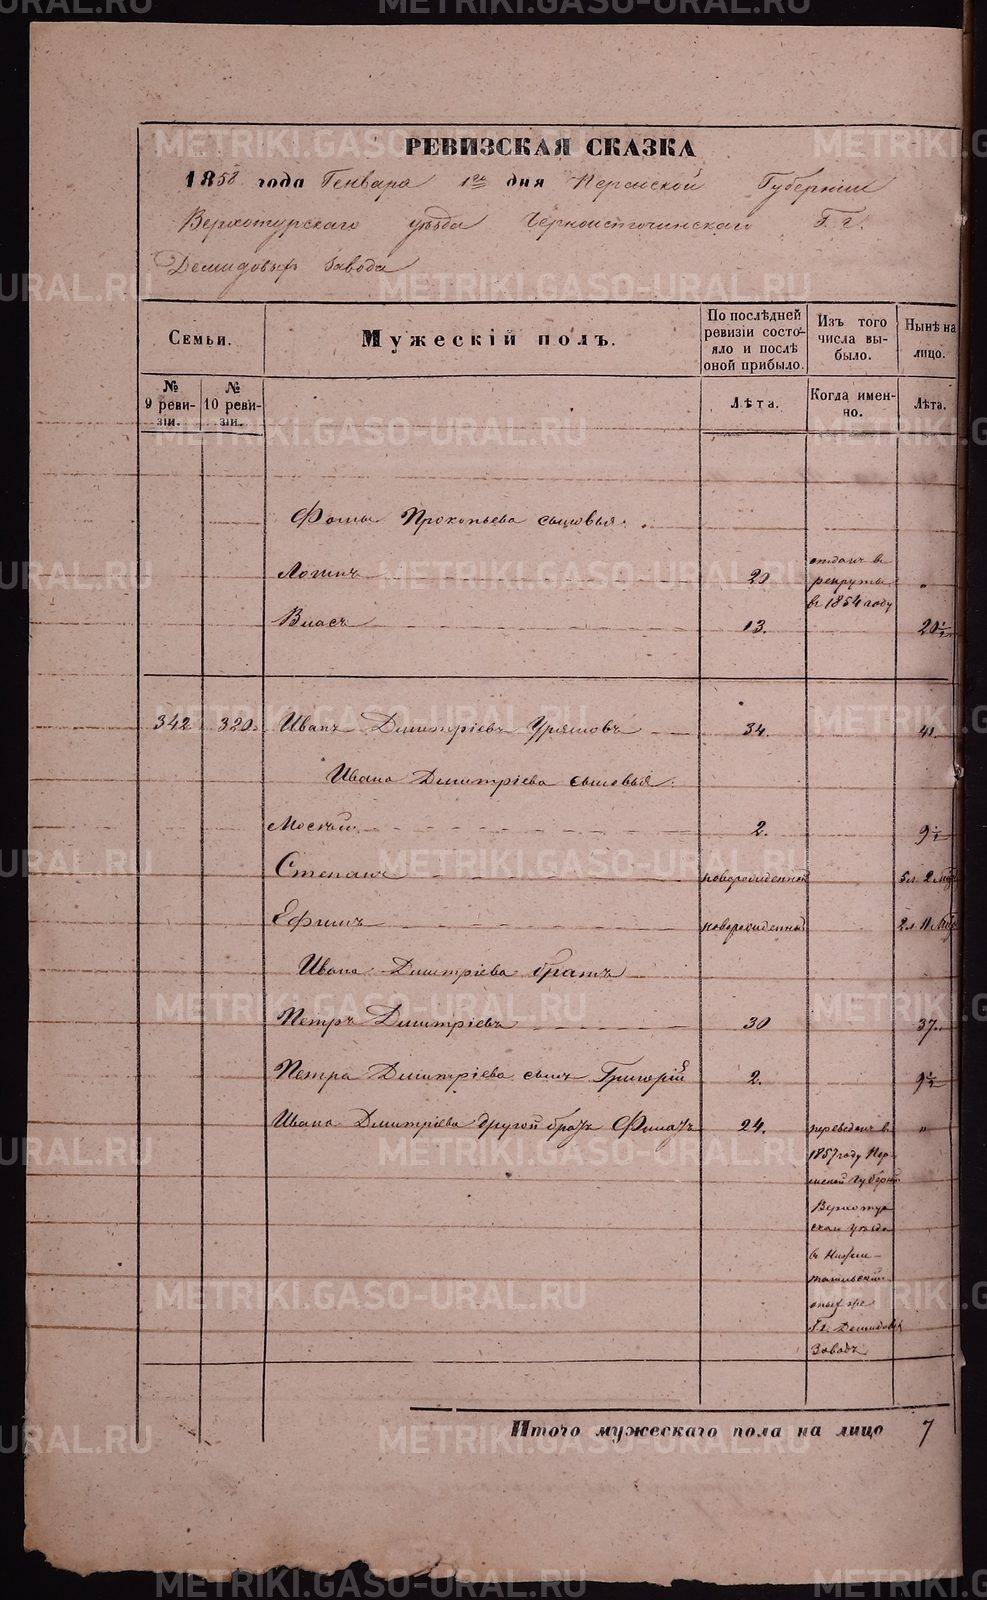 METRIKI.GASO-URAL.RU
РЕВИЗСКАЯ СКАЗКА
1858 года Генвара 1го дня Пермской Губернiи
Верхотурскаго уѣзда Черноисточинскаго Г. г.
Демидовыхъ Завода
Семьи.
Мужескiй полъ.
По послѣдней ревизiи состояло и послѣ оной прибыло.
Изъ того числа выбыло.
Нынѣ на лицо.
№ 9 ревизiи.
№ 10 ревизiи.
Лѣта.
Когда именно.
Лѣта.
Фомы Прокопьева сыновья.
Логинъ 20 отданъ въ рекруты въ 1854 году "
Власъ 13. 20½
342 320. Иванъ Дмитрiевъ 34. 41.
Ивана Дмитрiева сыновья:
Москѣй 2. 9½
Степанъ новорожденный 5 л. 2 мѣс
Ефимъ новорожденный 2 л. 11 мѣс
Ивана Дмитрiева братъ
Петръ Дмитрiевъ 30 37.
Петра Дмитрiева сынъ Григорiй 2. 9½
Ивана Дмитрiева другой братъ 24. переведенъ въ "
1857 году Пер-
мской Губернiи
Верхотур-
скаго уѣзда
въ Нижне-
тагильскiй
Г.г. Демидовыхъ
Заводъ
Итого мужескаго пола на лицо 7